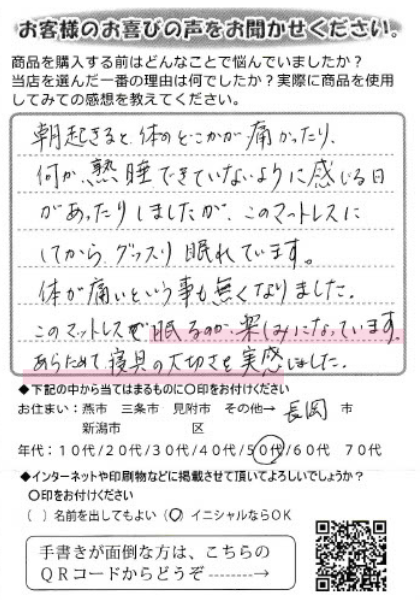 お客様のお喜びの声をお聞かせください。
商品を購入する前はどんなことで悩んでいましたか?
当店を選んだ一番の理由は何でしたか?実際に商品を使用
してみての感想を教えてください。
朝起きると、体のどこかが痛かったり、
何か、熟睡できていないように感じる日
があったりしましたが、このマットレスに
してから、グッスリ眠れています。
体が痛いという事も無くなりました。
このマットレスで眠るのが、楽しみになっています。
あらためて寝具の大切さを実感しました。
◆下記の中から当てはまるものに〇印をお付けください
お住まい:燕市 三条市 見附市 その他→ 長岡 市
新潟市 区
年代:10代/20代/30代/40代/50代/60代 70代
◆インターネットや印刷物などに掲載させて頂いてよろしいでしょうか?
〇印をお付けください
( )名前を出してもよい (〇)イニシャルならOK
手書きが面倒な方は、こちらの
QRコードからどうぞ-------→